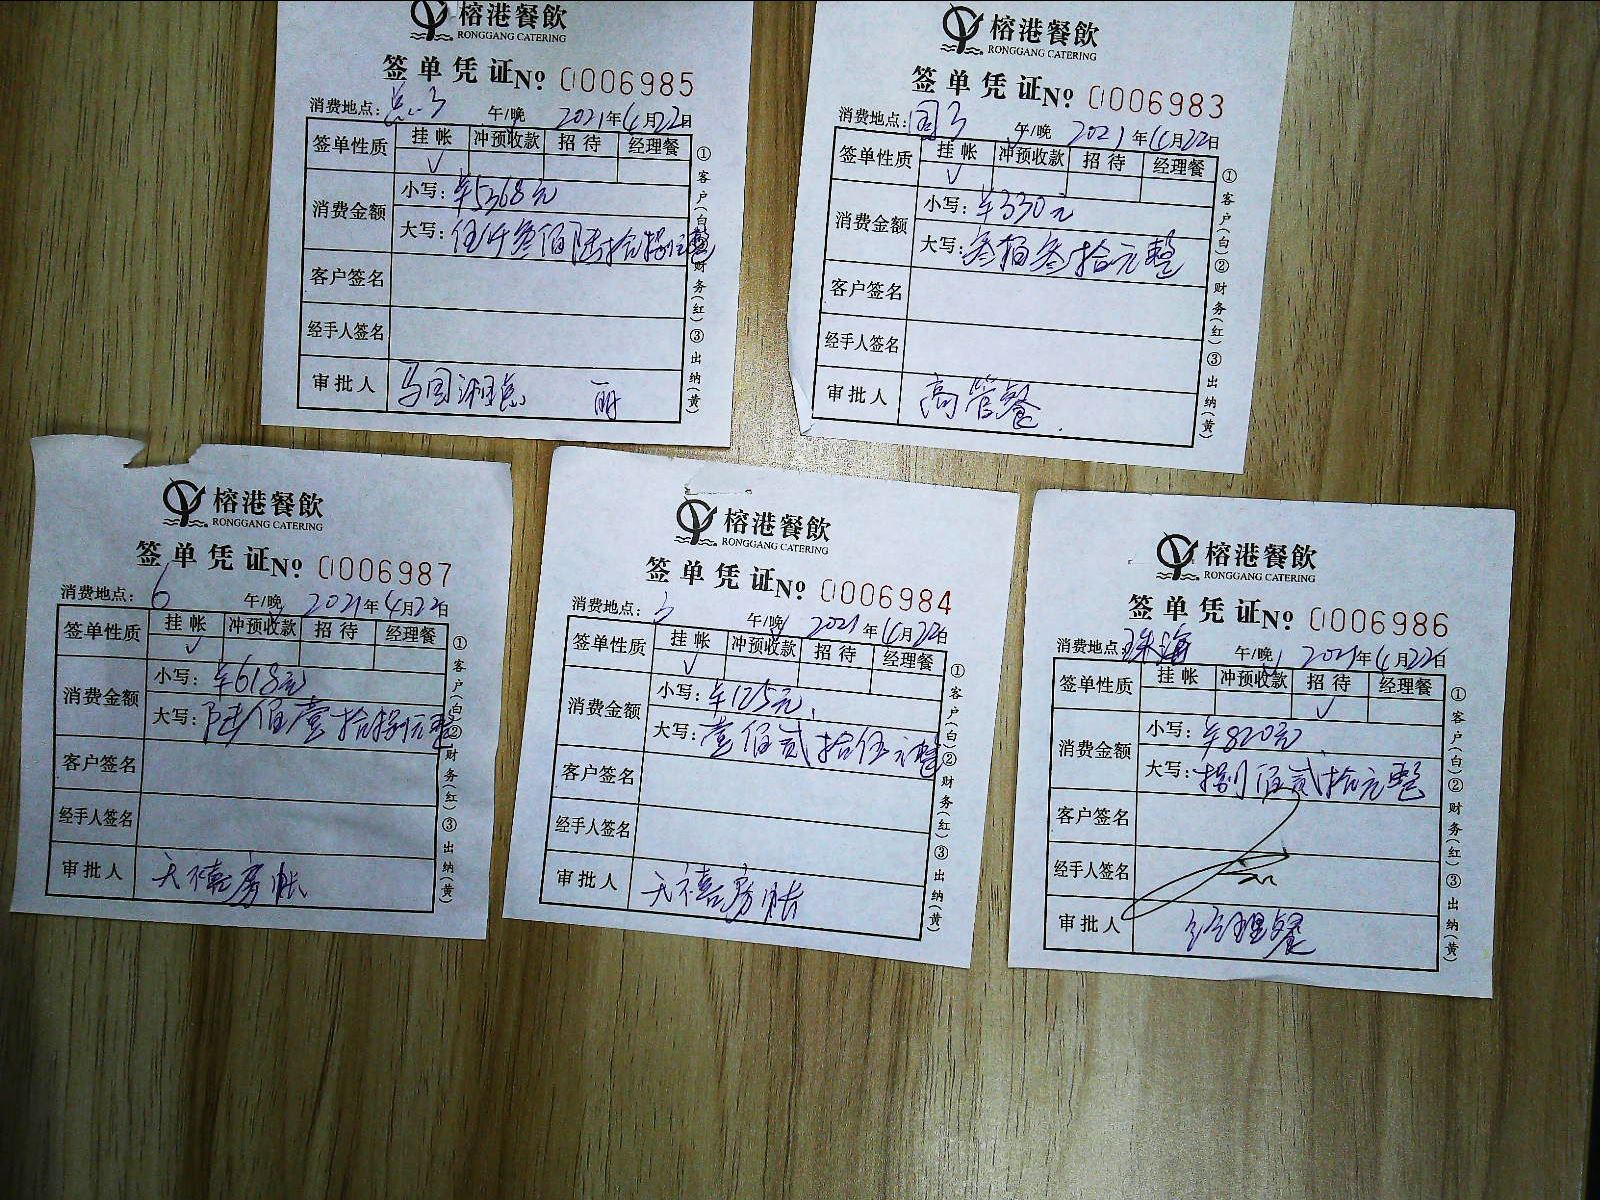 榕港餐飲
RONGGANG CATERING
签单凭证No 0006985
消费地点: 午/晚 2021年4月22日
签单性质 挂帐 冲预收款 招待 经理餐
✓
消费金额 小写: ¥5368元
大写: 伍仟叁佰陆拾捌元整
客户签名
经手人签名
审批人
①客户(白)②财务(红)③出纳(黄)
榕港餐飲
RONGGANG CATERING
签单凭证No 0006983
消费地点: 午/晚 2021年4月22日
签单性质 挂帐 冲预收款 招待 经理餐
✓
消费金额 小写: ¥330元
大写: 叁佰叁拾元整
客户签名
经手人签名
审批人 高管餐
①客户(白)②财务(红)③出纳(黄)
榕港餐飲
RONGGANG CATERING
签单凭证No 0006987
消费地点: 6 午/晚 2021年4月22日
签单性质 挂帐 冲预收款 招待 经理餐
✓
消费金额 小写: ¥618元
大写: 陆佰壹拾捌元整
客户签名
经手人签名
审批人 天禧房帐
①客户(白)②财务(红)③出纳(黄)
榕港餐飲
RONGGANG CATERING
签单凭证No 0006984
消费地点: 3 午/晚 2021年4月22日
签单性质 挂帐 冲预收款 招待 经理餐
✓
消费金额 小写: ¥125元
大写: 壹佰贰拾伍元整
客户签名
经手人签名
审批人 天禧房帐
①客户(白)②财务(红)③出纳(黄)
榕港餐飲
RONGGANG CATERING
签单凭证No 0006986
消费地点: 珠海 午/晚 2021年4月22日
签单性质 挂帐 冲预收款 招待 经理餐
✓
消费金额 小写: ¥820元
大写: 捌佰贰拾元整
客户签名
经手人签名
审批人 经理餐
①客户(白)②财务(红)③出纳(黄)